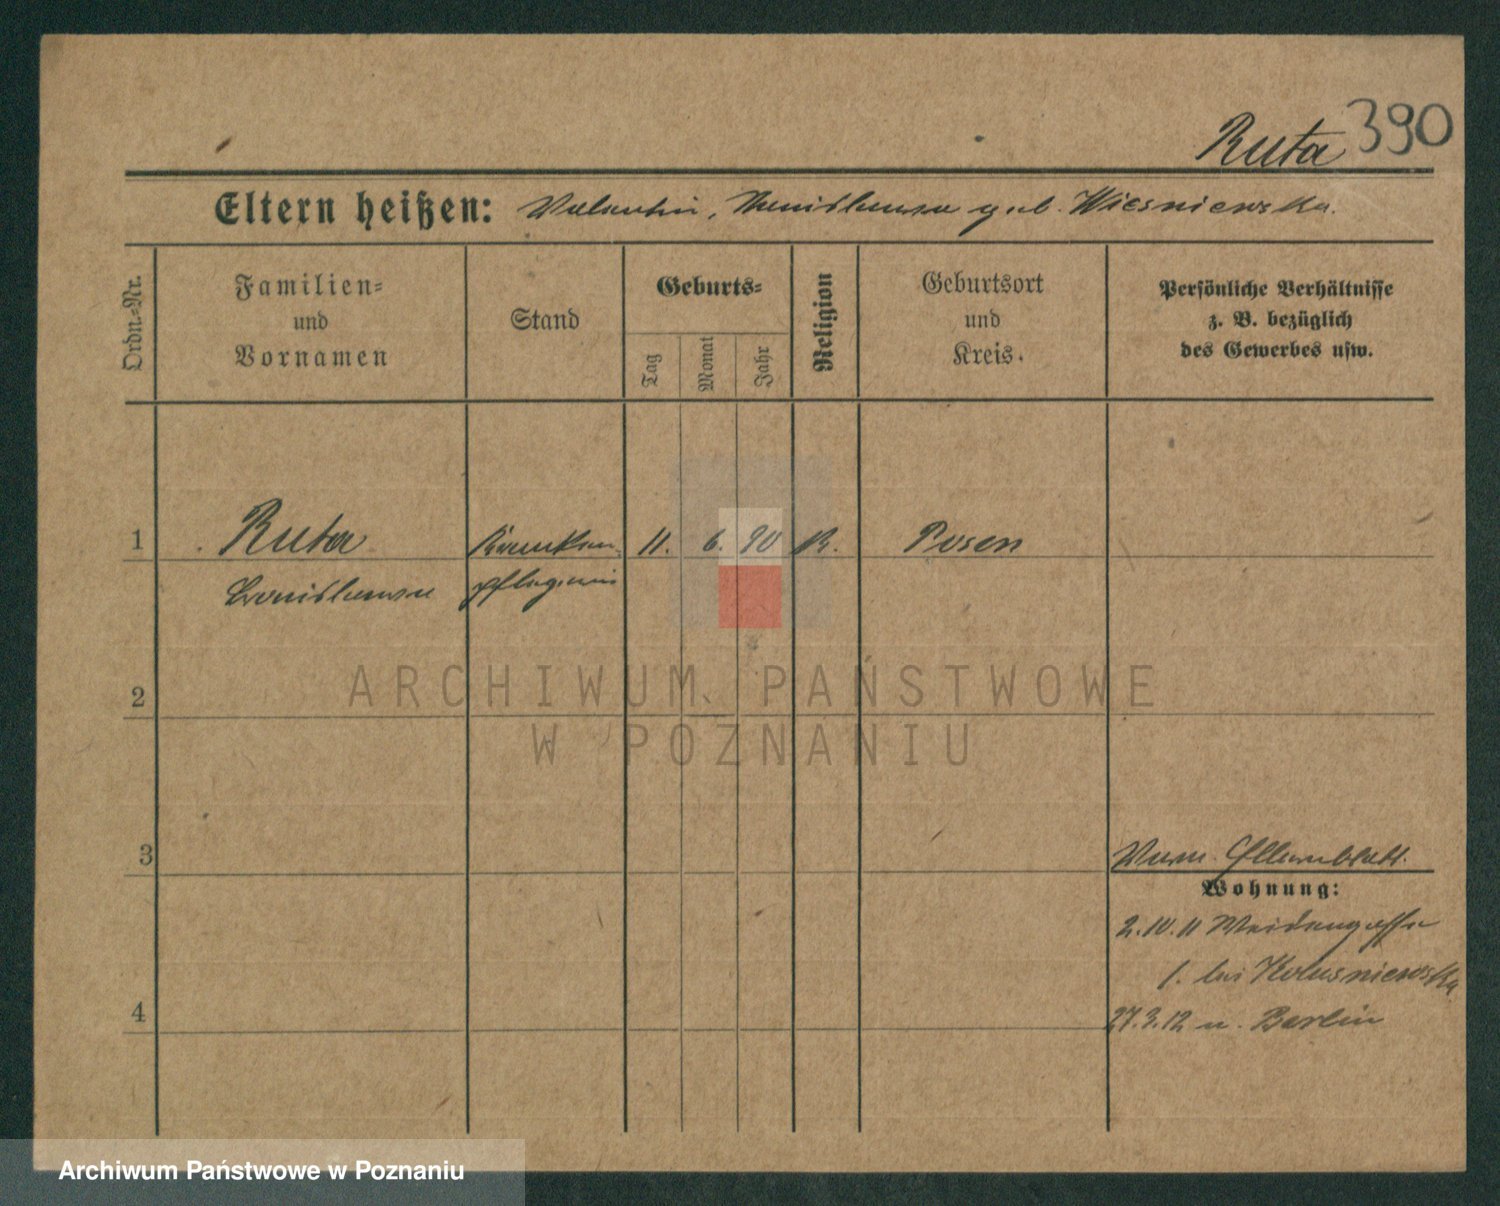 Ruta 390
Eltern heißen: Valentin, Stanislawa geb. Wiesniewska.
Ordn.-Nr.
Familien-
und
Vornamen
Stand
Geburts-
Tag
Monat
Jahr
Religion
Geburtsort
und
Kreis.
Persönliche Verhältnisse
z. B. bezüglich
des Gewerbes usw.
1 Ruta Kranken 11. 6. 90 K. Posen
Bronislawa pflegerin
2
ARCHIWUM PAŃSTWOWE
W POZNANIU
3
Elternblatt.
Wohnung:
2.10.11 Weidengasse
1. bei
4
27.3.12 n. Berlin
Archiwum Państwowe w Poznaniu